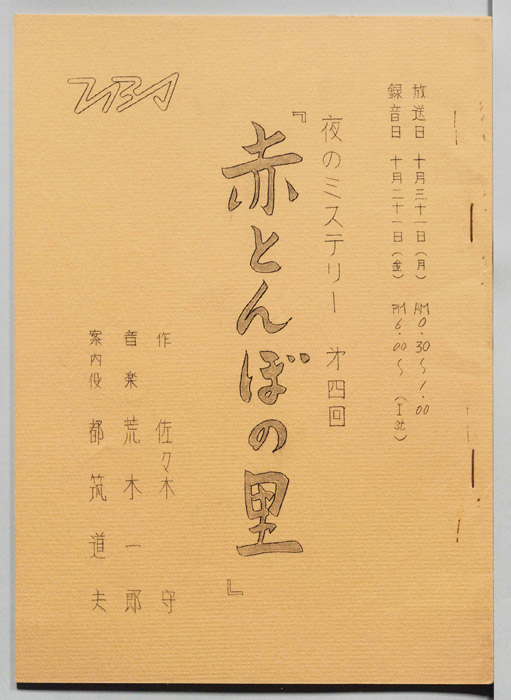 放送日 十月三十一日(月) AM 0.30~1.00
録音日 十月二十一日(金) PM 6.00~ (1st)
夜のミステリー 才四回
『赤とんぼの里』
作 佐々木 守
音楽 荒木 一郎
案内役 都筑 道夫
TBS